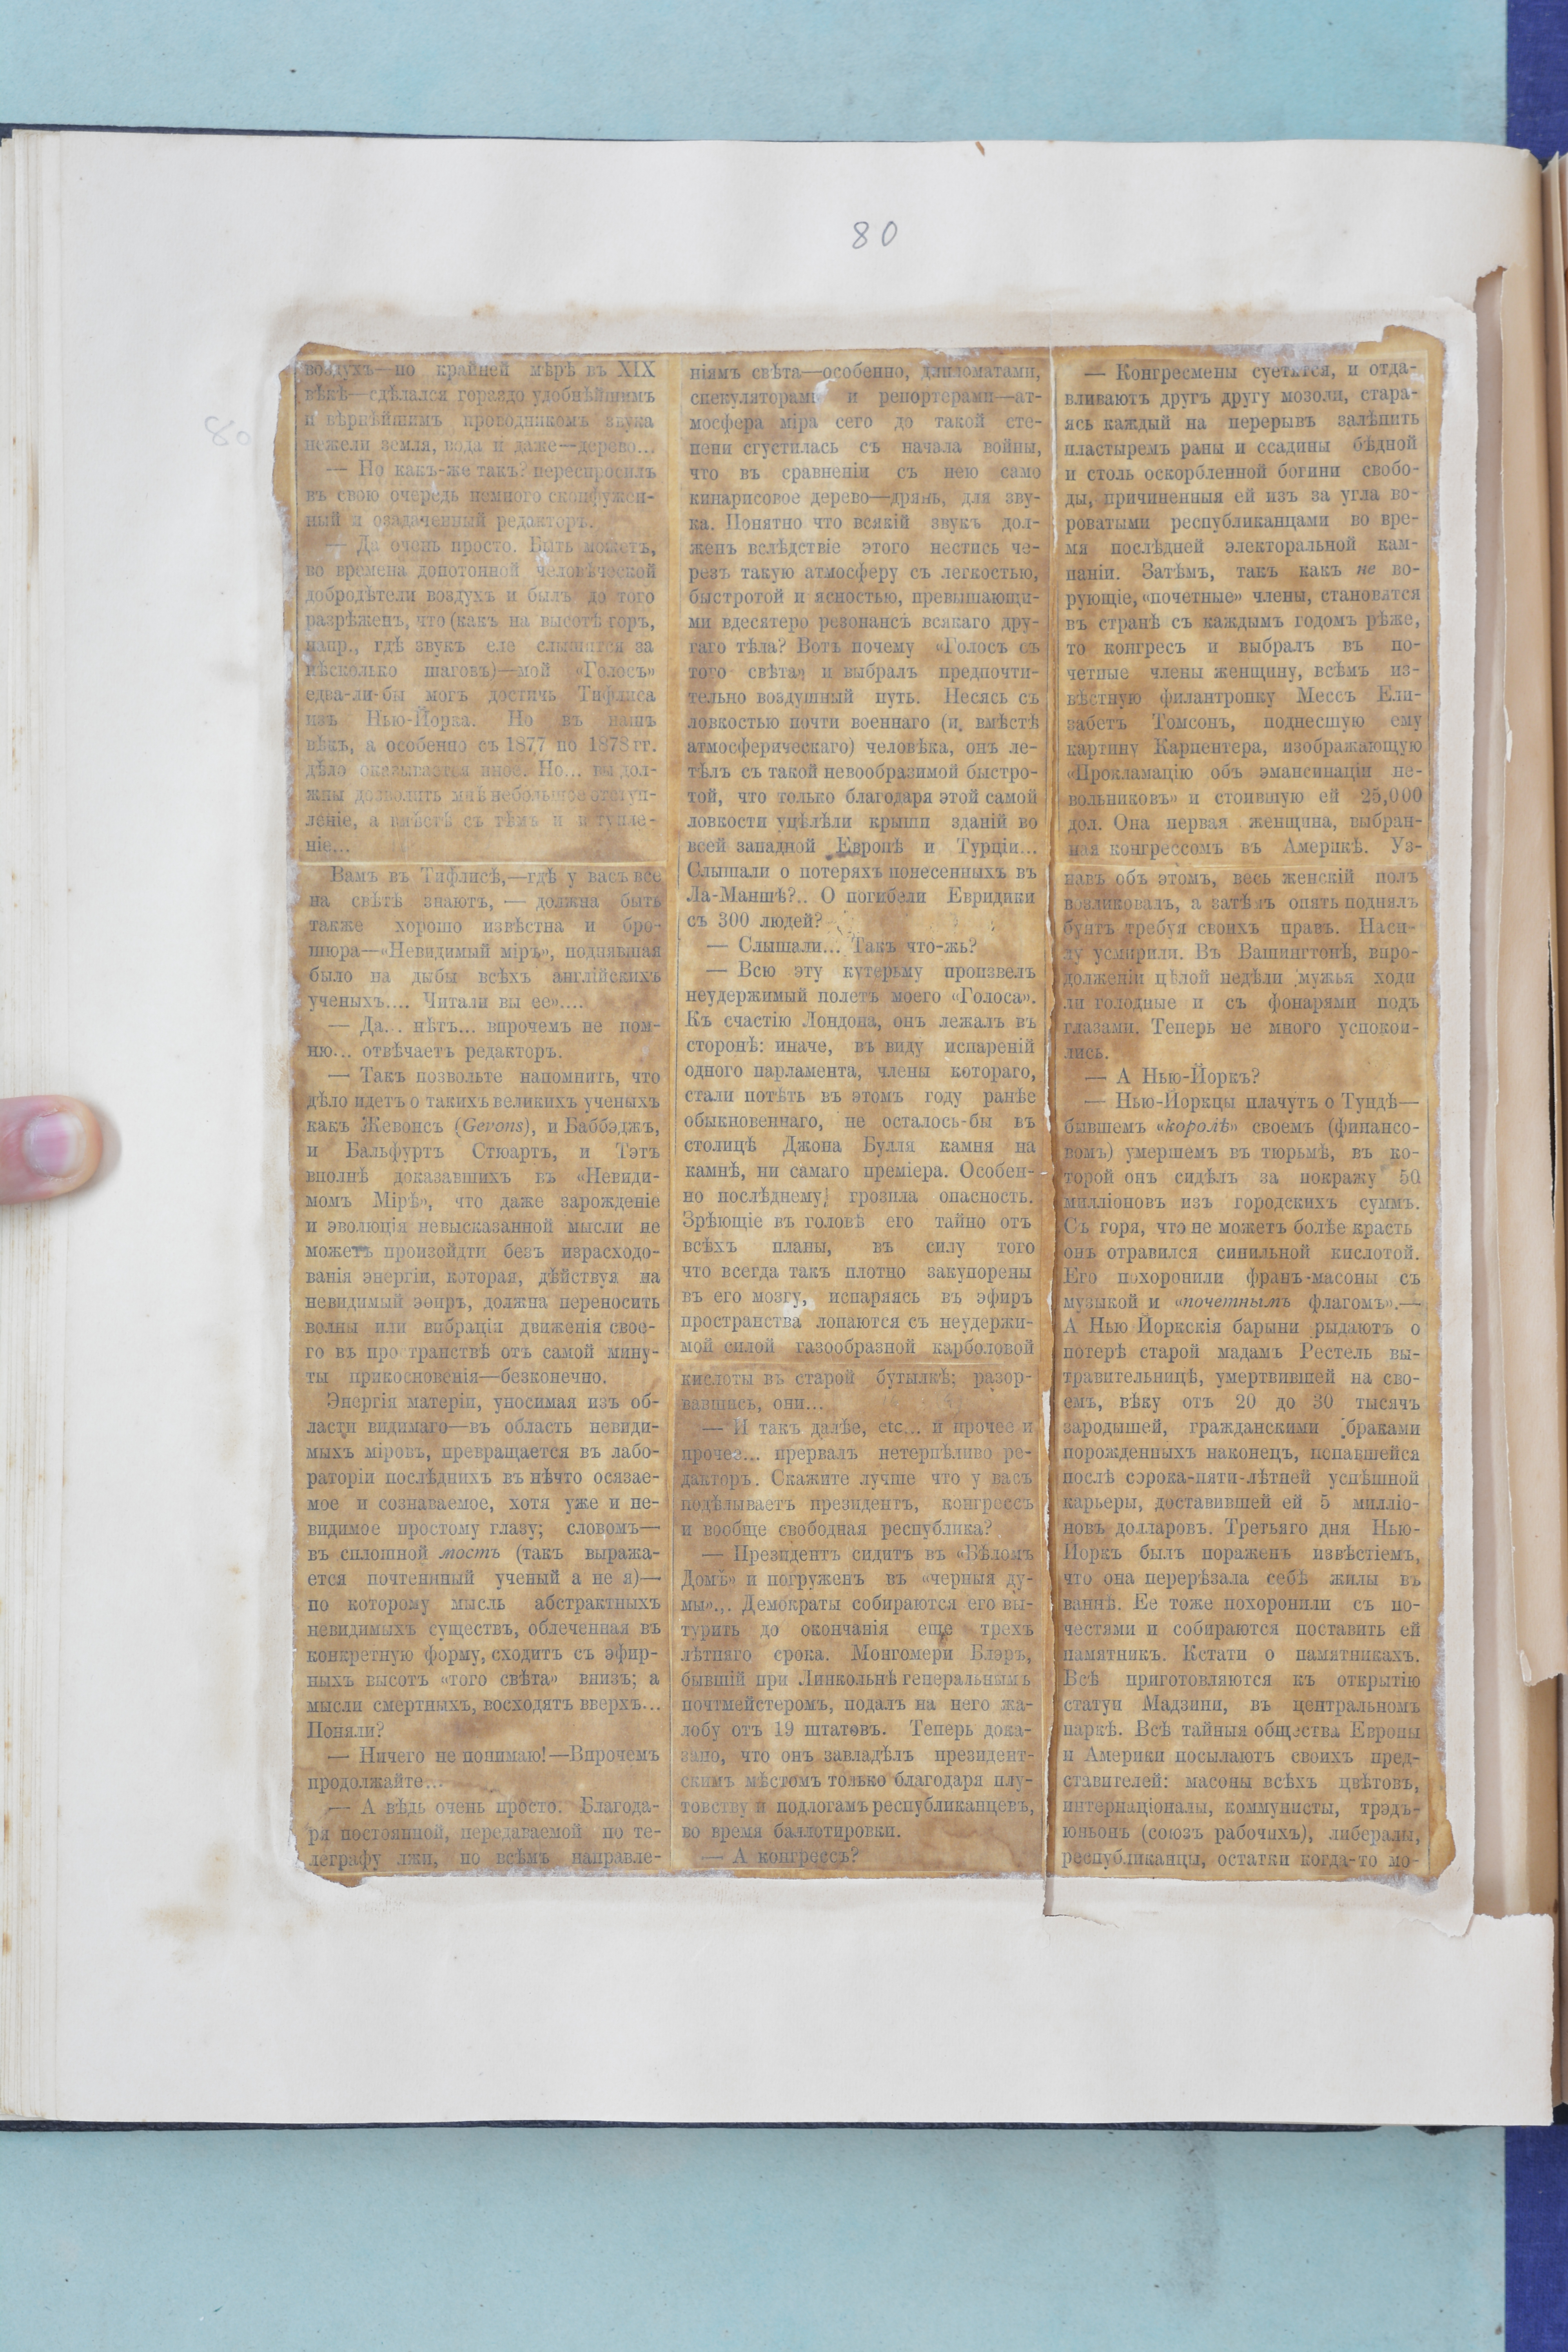 80
80
воздухъ—по крайней мѣрѣ въ XIX
вѣкѣ—сдѣлался гораздо удобнѣйшимъ
и вѣрнѣйшимъ проводникомъ звука
нежели земля, вода и даже—дерево...
— По какъ-же такъ? переспросилъ
въ свою очередь немного сконфужен-
ный и озадаченный редакторъ.
— Да очень просто. Быть можетъ,
во времена допотопной человѣческой
добродѣтели воздухъ и былъ до того
разрѣженъ, что (какъ на высотѣ горъ,
напр., гдѣ звукъ еле слышится за
нѣсколько шаговъ)—мой «Голосъ»
едва-ли-бы могъ достичь Тифлиса
изъ Нью-Йорка. Но въ нашъ
вѣкъ, а особенно съ 1877 по 1878 гг.
дѣло оказывается иное. Но... вы дол-
жны дозволить мнѣ небольшое отступ-
леніе, а вмѣстѣ съ тѣмъ и вступле-
ніе...
Вамъ въ Тифлисѣ,—гдѣ у васъ все
на свѣтѣ знаютъ, — должна быть
также хорошо извѣстна и бро-
шюра—«Невидимый міръ», поднявшая
было на дыбы всѣхъ англійскихъ
ученыхъ.... Читали вы ее»....
— Да... нѣтъ... впрочемъ не пом-
ню... отвѣчаетъ редакторъ.
— Такъ позвольте напомнить, что
дѣло идетъ о такихъ великихъ ученыхъ
какъ Жевонсъ (Gevons), и Баббэджъ,
и Бальфуртъ Стюартъ, и Тэтъ
вполнѣ доказавшихъ въ «Невиди-
момъ Мірѣ», что даже зарожденіе
и эволюція невысказанной мысли не
можетъ произойдти безъ израсходо-
ванія энергіи, которая, дѣйствуя на
невидимый эѳиръ, должна переносить
волны или вибраціи движенія свое-
го въ про транствѣ отъ самой мину-
ты прикосновенія—безконечно.
Энергія матеріи, уносимая изъ об-
ласти видимаго—въ область невиди-
мыхъ міровъ, превращается въ лабо-
раторіи послѣднихъ въ нѣчто осязае-
мое и сознаваемое, хотя уже и не-
видимое простому глазу; словомъ—
въ сплошной мостъ (такъ выража-
ется почтенный ученый а не я)—
по которому мысль абстрактныхъ
невидимыхъ существъ, облеченная въ
конкретную форму, сходитъ съ эфир-
ныхъ высотъ «того свѣта» внизъ; а
мысли смертныхъ, восходятъ вверхъ...
Поняли?
— Ничего не понимаю!—Впрочемъ
продолжайте...
— А вѣдь очень просто. Благода-
ря постоянной, передаваемой по те-
леграфу лжи, по всѣмъ направле-
ніямъ свѣта—особенно, дипломатами,
спекуляторами и репортерами—ат-
мосфера міра сего до такой сте-
пени сгустилась съ начала войны,
что въ сравненіи съ нею само
кипарисовое дерево—дрянь, для зву-
ка. Понятно что всякій звукъ дол-
женъ вслѣдствіе этого нестись че-
резъ такую атмосферу съ легкостью,
быстротой и ясностью, превышающи-
ми вдесятеро резонансъ всякаго дру-
гаго тѣла? Вотъ почему «Голосъ съ
того свѣта» и выбралъ предпочти-
тельно воздушный путь. Несясь съ
ловкостью почти военнаго (и, вмѣстѣ
атмосферическаго) человѣка, онъ ле-
тѣлъ съ такой невообразимой быстро-
той, что только благодаря этой самой
ловкости уцѣлѣли крыши зданій во
всей западной Европѣ и Турціи...
Слышали о потеряхъ понесенныхъ въ
Ла-Маншѣ?.. О погибели Евридики
съ 300 людей?
— Слышали... Такъ что-жь?
— Всю эту кутерьму произвелъ
неудержимый полетъ моего «Голоса».
Къ счастію Лондона, онъ лежалъ въ
сторонѣ: иначе, въ виду испареній
одного парламента, члены котораго,
стали потѣть въ этомъ году ранѣе
обыкновеннаго, не осталось-бы въ
столицѣ Джона Булля камня на
камнѣ, ни самаго преміера. Особен-
но послѣднему грозила опасность.
Зрѣющіе въ головѣ его тайно отъ
всѣхъ планы, въ силу того
что всегда такъ плотно закупорены
въ его мозгу, испаряясь въ эфиръ
пространства лопаются съ неудержи-
мой силой газообразной карболовой
кислоты въ старой бутылкѣ; разор-
вавшись, они...
— И такъ далѣе, etc... и прочее и
прочее... прервалъ нетерпѣливо ре-
дакторъ. Скажите лучше что у васъ
подѣлываетъ президентъ, конгрессъ
и вообще свободная республика?
— Президентъ сидитъ въ «Бѣломъ
Домѣ» и погруженъ въ «черныя ду-
мы»... Демократы собираются его вы-
турить до окончанія еще трехъ
лѣтняго срока. Монгомери Блэръ,
бывшій при Линкольнѣ генеральнымъ
почтмейстеромъ, подалъ на него жа-
лобу отъ 19 штатовъ. Теперь дока-
зано, что онъ завладѣлъ президент-
скимъ мѣстомъ только благодаря плу-
товству и подлогамъ республиканцевъ,
во время баллотировки.
— А конгрессъ?
— Конгресмены суетятся, и отда-
вливаютъ другъ другу мозоли, стара-
ясь каждый на перерывъ залѣпить
пластыремъ раны и ссадины бѣдной
и столь оскорбленной богини свобо-
ды, причиненныя ей изъ за угла во-
роватыми республиканцами во вре-
мя послѣдней электоральной кам-
паніи. Затѣмъ, такъ какъ не во-
рующіе, «почетные» члены, становятся
въ странѣ съ каждымъ годомъ рѣже,
то конгресъ и выбралъ въ по-
четные члены женщину, всѣмъ из-
вѣстную филантропку Мессъ Ели-
забетъ Томсонъ, поднесшую ему
картину Карпентера, изображающую
«Прокламацію объ эмансипаціи не-
вольниковъ» и стоившую ей 25,000
дол. Она первая женщина, выбран-
ная конгрессомъ въ Америкѣ. Уз-
навъ объ этомъ, весь женскій полъ
возликовалъ, а затѣмъ опять поднялъ
бунтъ требуя своихъ правъ. Наси-
лу усмирили. Въ Вашингтонѣ, впро-
долженіи цѣлой недѣли мужья ходи
ли голодные и съ фонарями подъ
глазами. Теперь не много успокои-
лись.
— А Нью-Йоркъ?
— Нью-Йоркцы плачутъ о Тундѣ—
бывшемъ «королѣ» своемъ (финансо-
вомъ) умершемъ въ тюрьмѣ, въ ко-
торой онъ сидѣлъ за покражу 50
милліоновъ изъ городскихъ суммъ.
Съ горя, что не можетъ болѣе красть
онъ отравился синильной кислотой.
Его похоронили франъ-масоны съ
музыкой и «почетнымъ флагомъ».—
А Нью Йоркскія барыни рыдаютъ о
потерѣ старой мадамъ Рестель вы-
травительницѣ, умертвившей на сво-
емъ, вѣку отъ 20 до 30 тысячъ
зародышей, гражданскими браками
порожденныхъ наконецъ, попавшейся
послѣ сорока-пяти-лѣтней успѣшной
карьеры, доставившей ей 5 милліо-
новъ долларовъ. Третьяго дня Нью-
Йоркъ былъ пораженъ извѣстіемъ,
что она перерѣзала себѣ жилы въ
ваннѣ. Ее тоже похоронили съ по-
честями и собираются поставить ей
памятникъ. Кстати о памятникахъ.
Всѣ приготовляются къ открытію
статуи Мадзини, въ центральномъ
паркѣ. Всѣ тайныя общества Европы
и Америки посылаютъ своихъ пред-
ставителей: масоны всѣхъ цвѣтовъ,
интернаціоналы, коммунисты, трэдъ-
юньонъ (союзъ рабочихъ), либералы,
республиканцы, остатки когда-то мо-